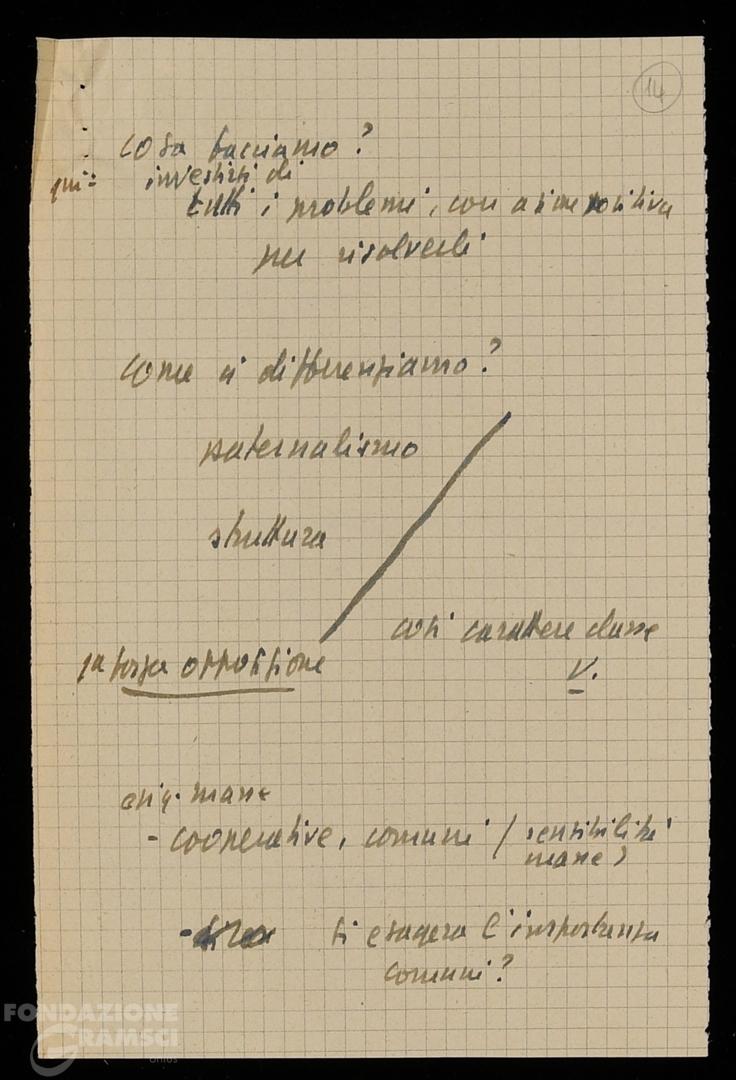 14
cosa facciamo?
qui: investirsi di
tutti i problemi, con azione positiva
per risolverli
come ci differenziamo?
paternalismo
struttura
così carattere classe
V.
la forza opposizione
esig. masse
- cooperative, comuni (sensibilità
masse)
- si esagera l'importanza
comuni?
FONDAZIONE
GRAMSCI
onlus